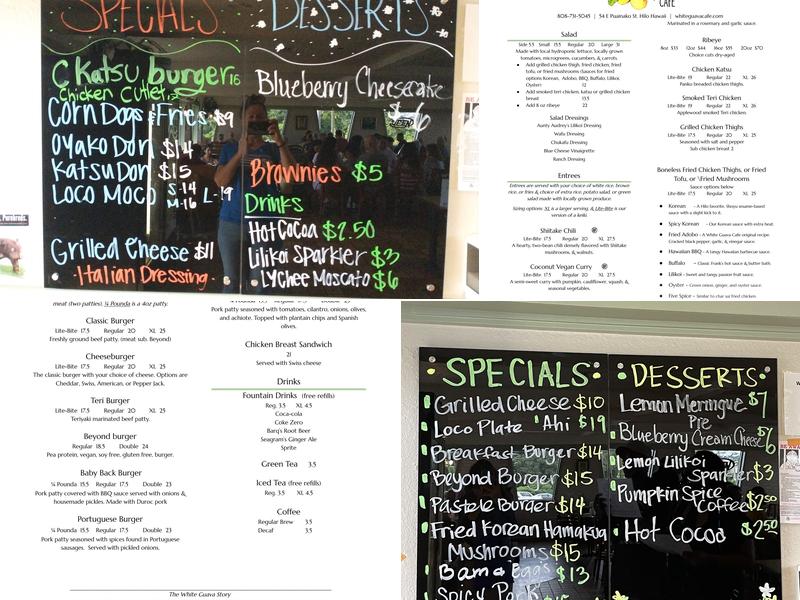 SPECIALS
C Katsu burger 16
Chicken Cutlet
Corn Dogs & Fries $9
Oyako Don $14
Katsu Don $15
Loco Moco S-14
M-16 L-19
Grilled Cheese $11
-Italian Dressing-
DESSERTS
Blueberry Cheesecake
$6
Brownies $5
Drinks
Hot Cocoa $2.50
Lilikoi Sparkler $3
Lychee Moscato $6
CAFE
808-731-5045 | 54 E Puainako St. Hilo Hawaii | whiteguavacafe.com
Salad
Side 5.5 Small 13.5 Regular 20 Large 31
Made with local hydroponic lettuce, locally grown
tomatoes, microgreens, cucumbers, & carrots.
Add grilled chicken thigh, fried chicken, fried
tofu, or fried mushrooms (Sauces for fried
options Korean, Adobo, BBQ, Buffalo, Lilikoi,
Oyster) 12
Add smoked teri chicken, katsu or grilled chicken
breast 13.5
Add 8 oz ribeye 22
Salad Dressings
Aunty Audrey's Lilikoi Dressing
Wafu Dressing
Chukafu Dressing
Blue Cheese Vinaigrette
Ranch Dressing
Entrees
Entrees are served with your choice of white rice, brown
rice, or fries &, choice of extra rice, potato salad, or green
salad made with locally grown produce.
Sizing options: XL is a larger serving, & Lite-Bite is our
version of a keiki.
Shiitake Chili
Lite-Bite 17.5 Regular 20 XL 25
A hearty, two-bean chili densely flavored with Shiitake
mushrooms, & walnuts.
Coconut Vegan Curry
Lite-Bite 17.5 Regular 20 XL 25
A semi-sweet curry with pumpkin, cauliflower, squash, &,
seasonal vegetables.
Marinated in a rosemary and garlic sauce.
Ribeye
8oz $33 12oz $44 16oz $55 20oz $70
Choice cuts dry-aged
Chicken Katsu
Lite-Bite 19 Regular 22 XL 26
Panko breaded chicken thighs.
Smoked Teri Chicken
Lite-Bite 19 Regular 22 XL 26
Applewood smoked Teri chicken.
Grilled Chicken Thighs
Lite-Bite 17.5 Regular 20 XL 25
Seasoned with salt and pepper
Sub chicken breast 2
Boneless Fried Chicken Thighs, or Fried
Tofu, or \Fried Mushrooms
Sauce options below
Lite-Bite 17.5 Regular 20 XL 25
Korean – A Hilo favorite. Shoyu inname-based
sauce with a slight kick to it.
Spicy Korean – Our Korean sauce with extra heat
Fried Adobo – A White Guava Cafe original recipe.
Cracked black pepper, garlic, &, vinegar sauce.
Hawaiian BBQ – A tangy Hawaiian barbecue sauce.
Buffalo – Classic Frank's hot sauce & butter bath.
Lilikoi – Sweet and tangy passion fruit sauce.
Oyster – Green onion, ginger, and oyster sauce.
Five Spice – Similar to char siu fried chicken.
meat (two patties). ¼ Pounda is a 4oz patty.
Classic Burger
Lite-Bite 17.5 Regular 20 XL 25
Freshly ground beef patty. (meat sub. Beyond)
Cheeseburger
Lite-Bite 17.5 Regular 20 XL 25
The classic burger with your choice of cheese. Options are
Cheddar, Swiss, American, or Pepper Jack.
Teri Burger
Lite-Bite 17.5 Regular 20 XL 25
Teriyaki marinated beef patty.
Beyond burger
Regular 18.5 Double 24
Pea protein, vegan, soy free, gluten free, burger.
Baby Back Burger
¼ Pounda 15.5 Regular 17.5 Double 23
Pork patty covered with BBQ sauce served with onions &,
housemade pickles. Made with Duroc pork
Portuguese Burger
¼ Pounda 15.5 Regular 17.5 Double 23
Pork patty seasoned with spices found in Portuguese
sausages. Served with pickled onions.
Pork patty seasoned with tomatoes, cilantro, onions, olives,
and achiote. Topped with plantain chips and Spanish
olives.
Chicken Breast Sandwich
21
Served with Swiss cheese
Drinks
Fountain Drinks (free refills)
Reg. 3.5 XL 4.5
Coca-cola
Coke Zero
Barq's Root Beer
Seagram's Ginger Ale
Sprite
Green Tea 3.5
Iced Tea (free refills)
Reg. 3.5 XL 4.5
Coffee
Regular Brew 3.5
Decaf 3.5
The White Guava Story
SPECIALS
Grilled Cheese $10
Loco Plate 'Ahi $19
Breakfast Burger $14
Beyond Burger $15
Pastele Burger $14
Fried Korean Hamakua
Mushrooms $15
Bam & Eggs $13
Spicy Pork
DESSERTS
Lemon Meringue $7
Pie
Blueberry Cream Cheese $6
Lemon Lilikoi
Sparkler $3
Pumpkin Spice
Coffee $2.50
Hot Cocoa $2.50